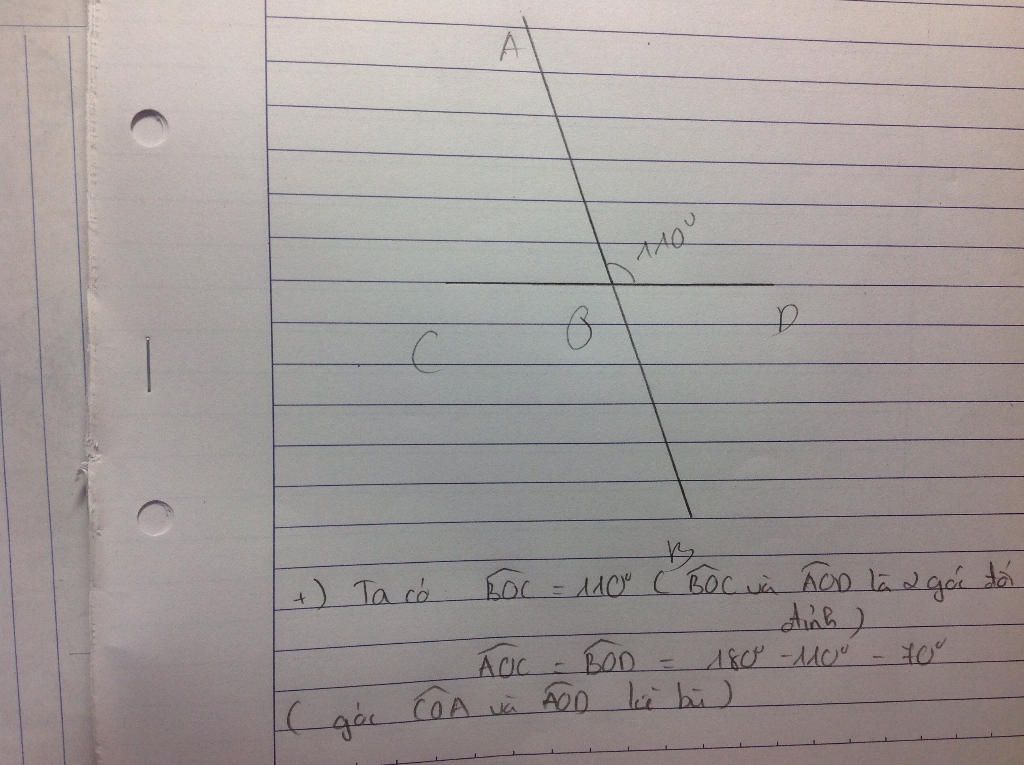 A
110°
C
O
D
B
+) Ta có BOC = 110° ( BOC và AOD là 2 góc đối
đỉnh )
AOC = BOD = 180° - 110° - 70°
( góc COA và AOD kề bù )